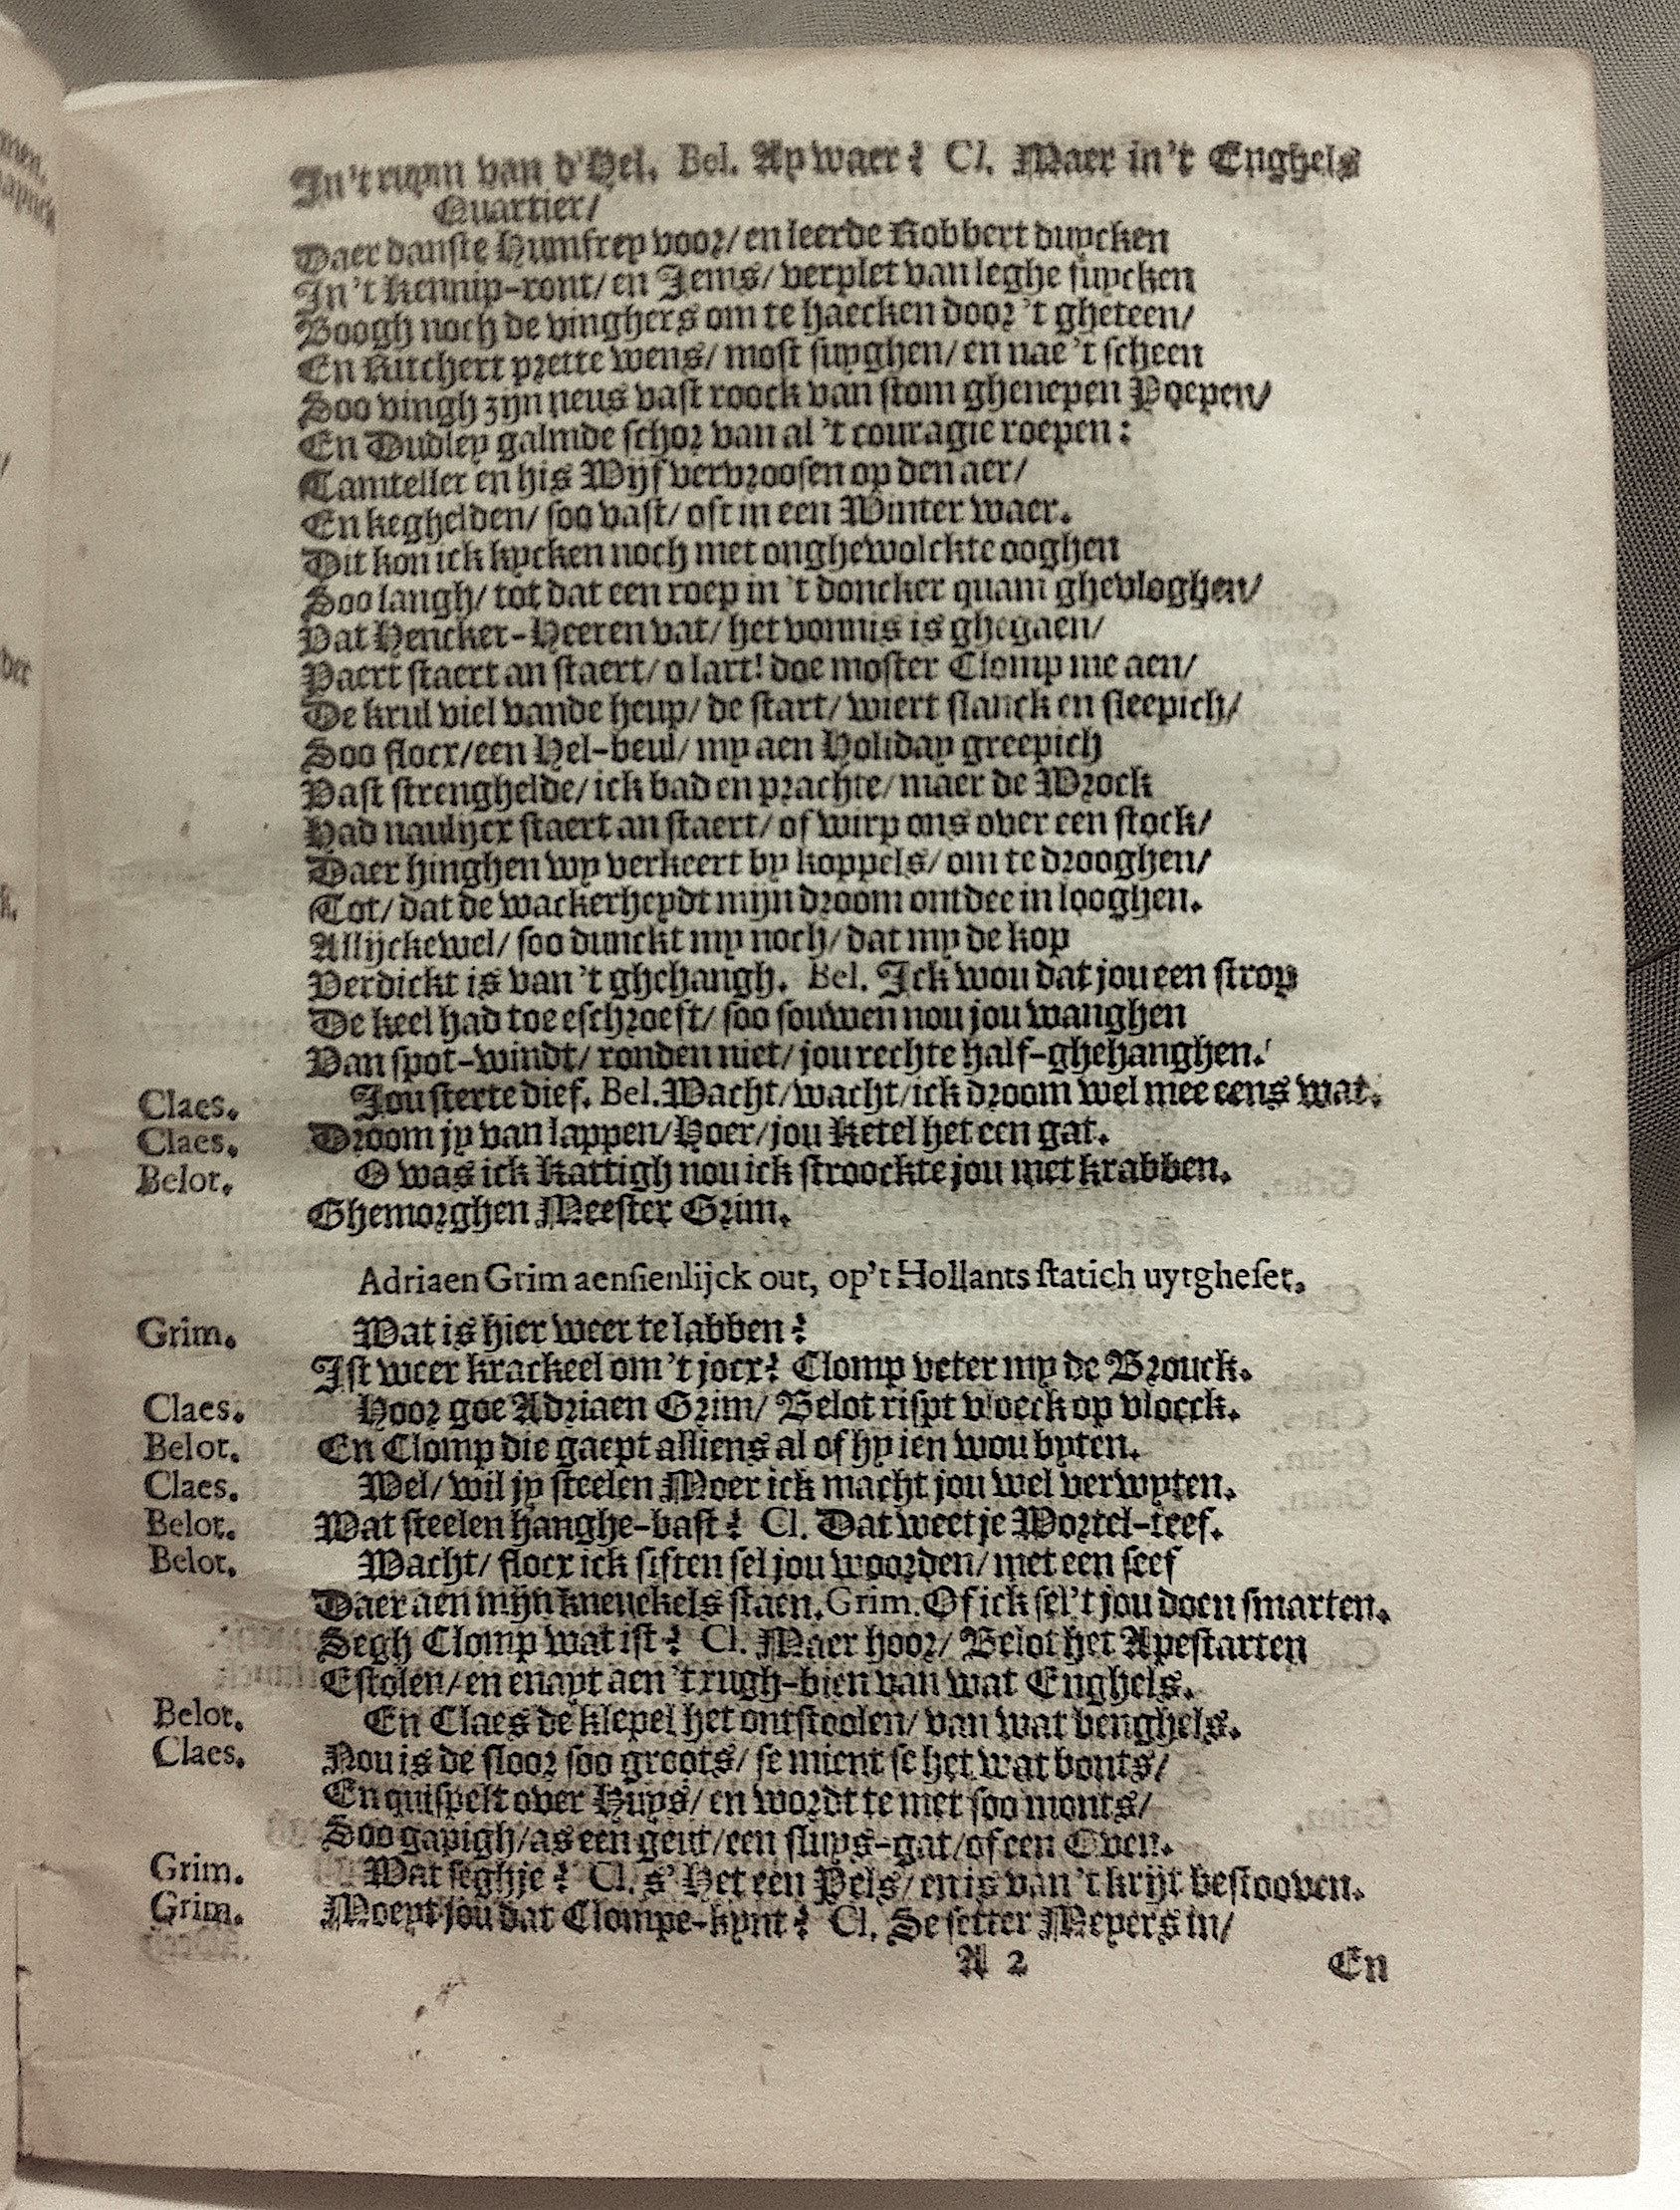 In't ruym van d'Hel. Bel. Ay waer? Cl. Maer in't Enghels
Quartier/
Daer danste Humfrey voor/ en leerde Robbert duycken
In't kennip-ront/ en Jems/ verplet van leghe fuycken
Boogh noch de vinghers om te haecken door 't gheteen/
En Ritchert prette wens/ most suyghen/ en nae 't scheen
Soo vingh zijn neus vast roock van stom ghenepen Poepen/
En Dudley galmde schor van al 't couragie roepen:
Tamteller en his Wijf vervroosen op den aer/
En keghelden/ soo vast/ oft in een Winter waer.
Dit kon ick kycken noch met onghewolckte ooghen
Soo langh/ tot dat een roep in 't doncker quam ghevloghen/
Vat Hencker-Heeren vat/ het vonnis is ghegaen/
Paert staert an staert/ o lart! doe moster Clomp me aen/
De krul viel vande heup/ de start/ wiert slanck en sleepich/
Soo flocx/ een Hel-beul/ my aen Holiday greepich
Vast strenghelde/ ick bad en prachte/ maer de Wrock
Had naulijcx staert an staert/ of wirp ons over een stock/
Daer hinghen wy verkeert by koppels/ om te drooghen/
Tot/ dat de wackerheydt mijn droom ontdee in looghen.
Allijckewel/ soo dunckt my noch/ dat my de kop
Verdickt is van 't ghehangh. Bel. Ick wou dat jou een strop
De keel had toe eschroeft/ soo souwen nou jou wanghen
Van spot-windt/ ronden niet/ jou rechte half-ghehanghen.
Claes. Jou sterte dief. Bel. Wacht/ wacht/ ick droom wel mee eens wat.
Claes. Droom jy van lappen/ Hoer/ jou Ketel het een gat.
Belot. O was ick Kattigh nou ick stroockte jou met krabben.
Ghemorghen Meester Grim.
Adriaen Grim aensienlijck out, op't Hollants statich uytgheset.
Grim. Wat is hier weer te labben?
Ist weer krackeel om 't jocx? Clomp veter my de Brouck.
Claes. Hoor goe Adriaen Grim/ Belot rispt vloeck op vloeck.
Belot. En Clomp die gaept alliens al of hy ien wou byten.
Claes. Wel/ wil jy steelen Moer ick macht jou wel verwyten.
Belot. Wat steelen hanghe-bast? Cl. Dat weetje Wortel-teef.
Belot. Wacht/ flocx ick siften sel jou woorden/ met een seef
Daer aen mijn kneuckels staen. Grim. Of ick sel't jou doen smarten.
Segh Clomp wat ist? Cl. Maer hoor/ Belot het Apestarten
Estolen/ en enayt aen 't rugh-bien van wat Enghels.
Belot. En Claes de klepel het ontstoolen/ van wat benghels.
Claes. Nou is de sloor soo groots/ se mient se het wat bonts/
En quispelt over Huys/ en wordt te met soo monts/
Soo gapigh/ as een geut/ een sluys-gat/ of een Oven.
Grim. Wat seghje? Cl. s' Het een Pels/ en is van 't krijt bestooven.
Grim. Moeyt jou dat Clompe-kynt? Cl. Se setter Meyers in/
A 2 En